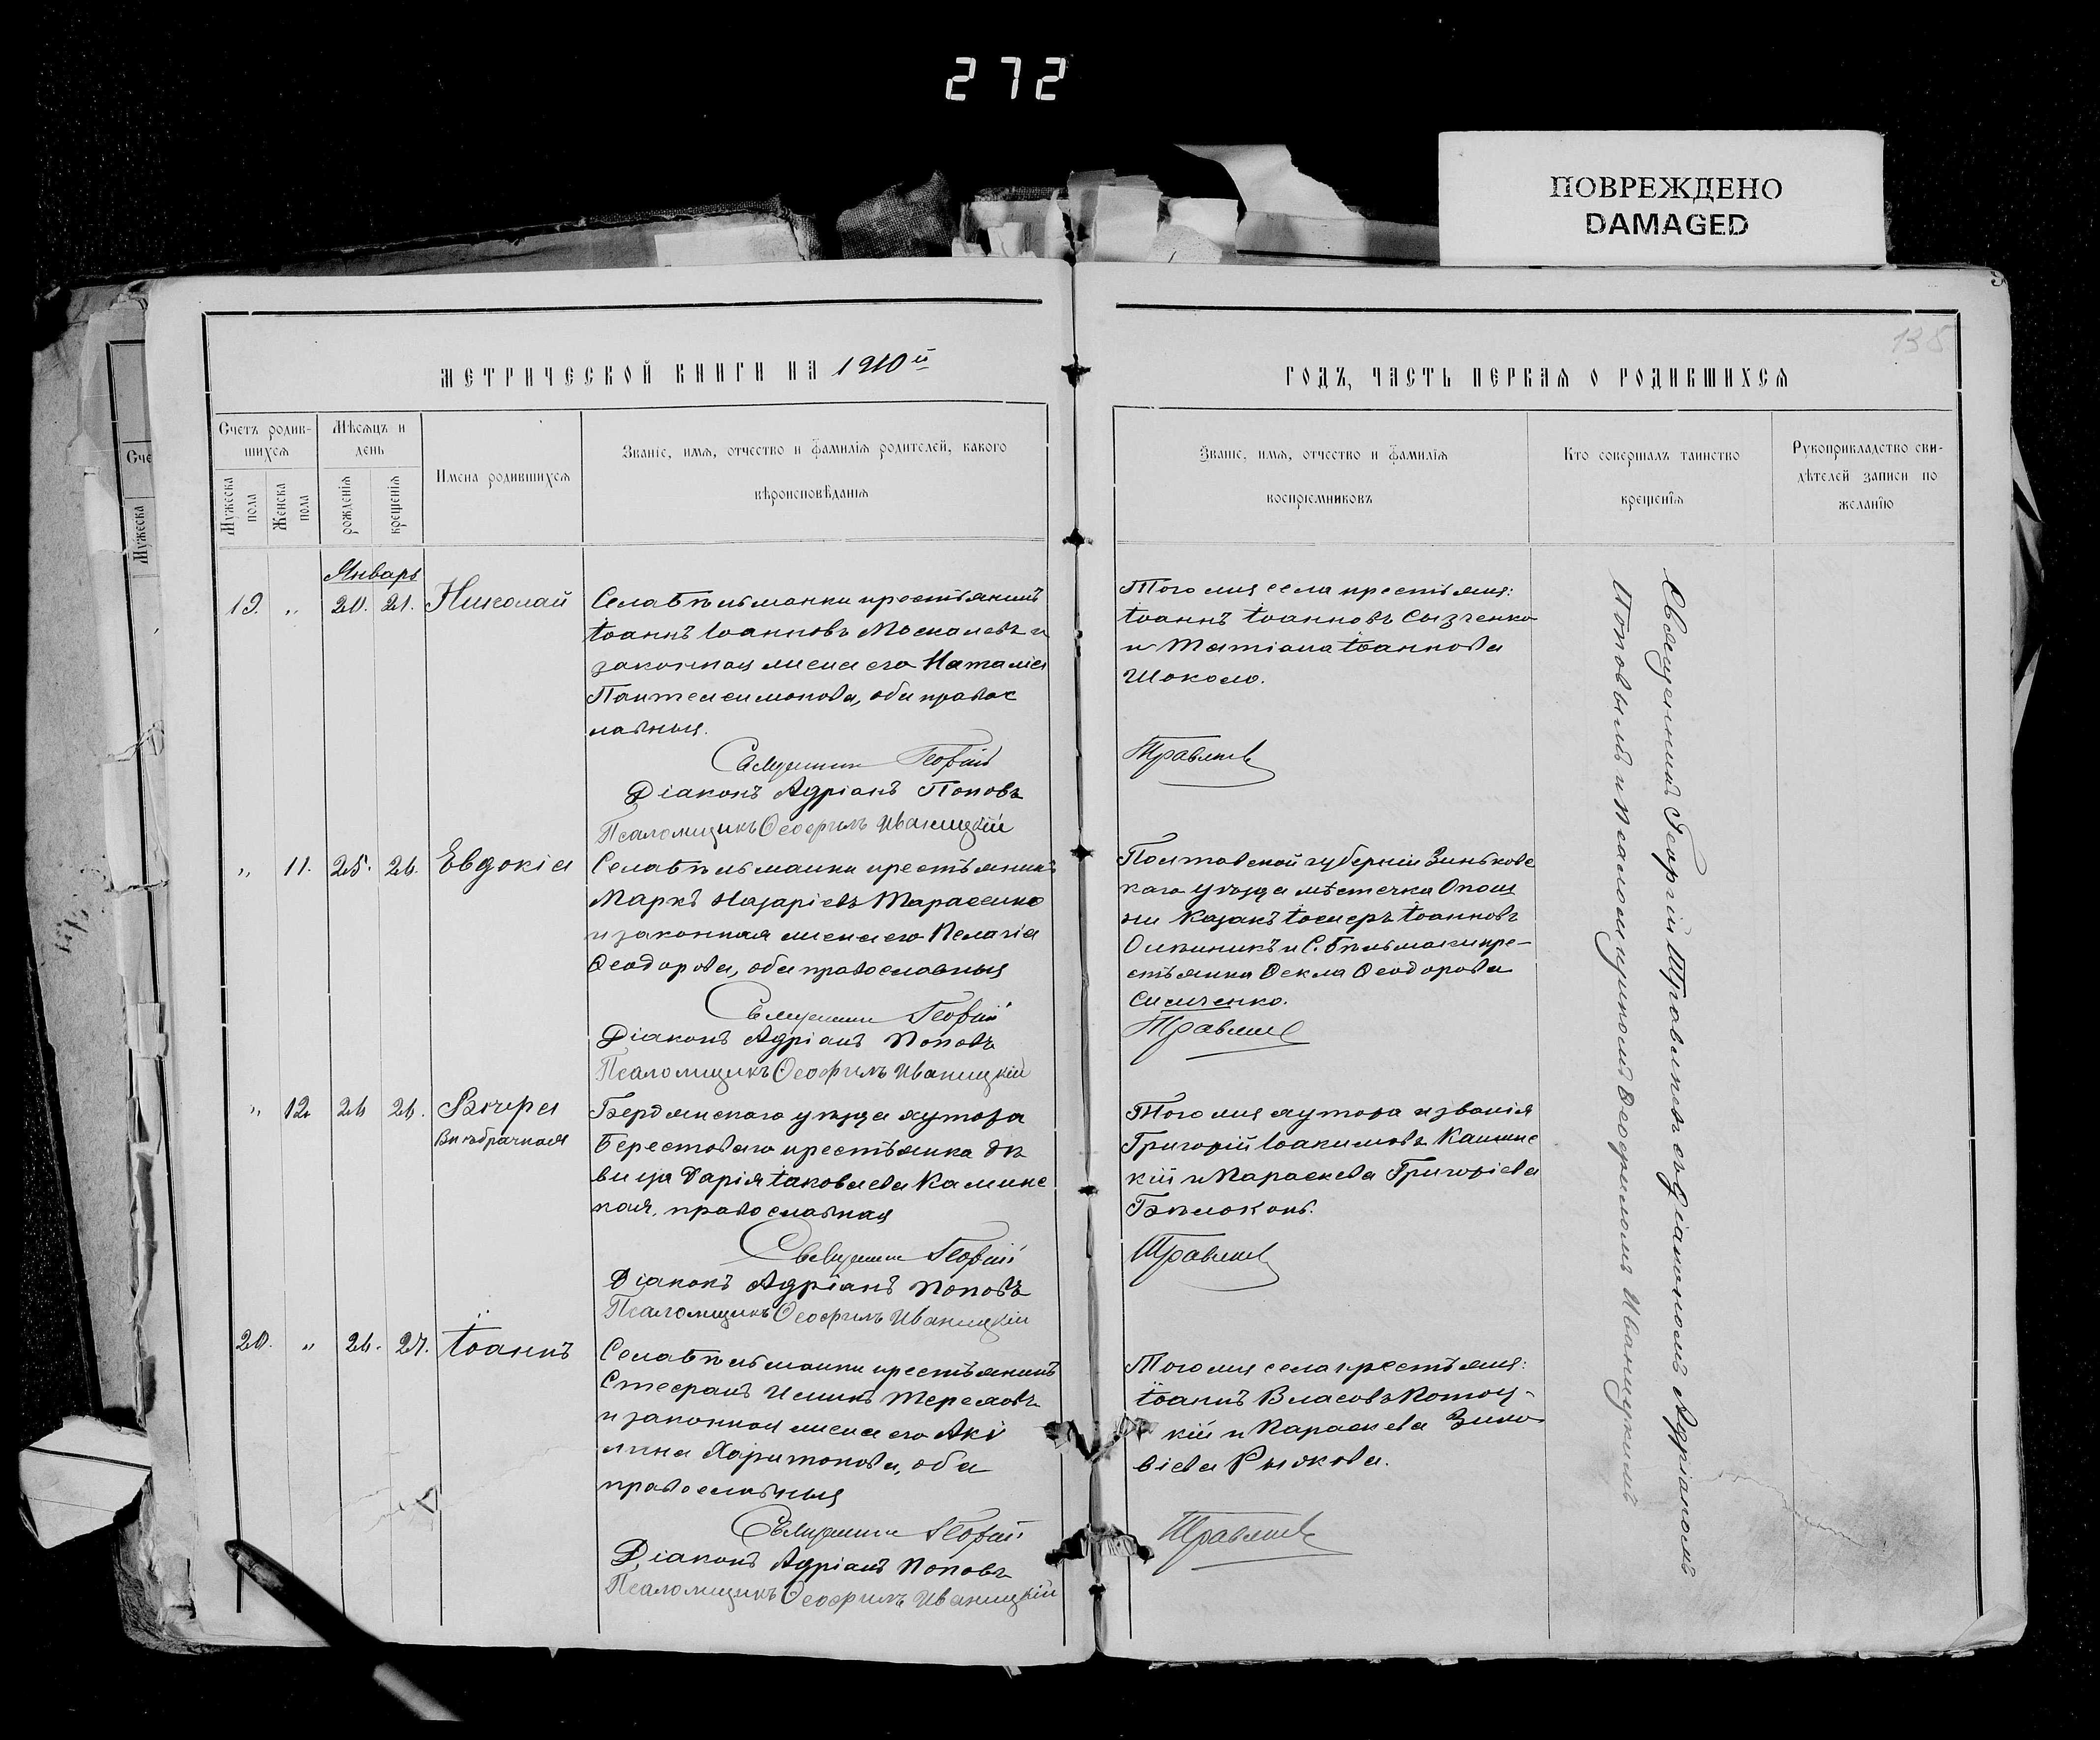 272
ПОВРЕЖДЕНО
DAMAGED
138
МЕТРИЧЕСКОЙ КНИГИ НА 1910й
ГОДЪ, ЧАСТЬ ПЕРВАЯ О РОДИВШИХСЯ
Счетъ родив-
шихся
Мужеска
пола
Женска
пола
Мѣсяцъ и
день
рожденія
крещенія
Имена родившихся
Званіе, имя, отчество и фамилія родителей, какого
вѣроисповѣданія
Званіе, имя, отчество и фамилія
воспріемниковъ
Кто совершалъ таинство
крещенія
Рукоприкладство сви-
дѣтелей записи по
желанію
Январь
19. „ 20. 21. Николай
Села Бѣльманки крестьянинъ
Іоаннъ Іоанновъ Москалевъ и
законная жена его Наталія
Пантелеимонова, оба правос
лавныя.
Священникъ Георгій
Діаконъ Адріанъ Поповъ
Псаломщикъ Ѳеофилъ Иваницкій
Того же села крестьяне:
Іоаннъ Іоанновъ Сызченко
и Татіана Іоаннова
Шоколо.
Травлевъ
„ 11. 25. 26. Евдокія
Села Бѣльманки крестьянинъ
Маркъ Назаріевъ Тарасенко
и законная жена его Пелагія
Ѳеодорова, оба православныя
Священникъ Георгій
Діаконъ Адріанъ Поповъ
Псаломщикъ Ѳеофилъ Иваницкій
Полтавской губерніи Зиньковс
каго уѣзда мѣстечка Опош
ни казакъ Іосифъ Іоанновъ
Олѣйникъ и С. Бѣльманки кре-
стьянка Ѳекла Ѳеодорова
„ 12 26 26. Вѣра
Внѣбрачная
Бердянскаго уѣзда хутора
Берестоваго крестьянка дѣ
вица Дарія Іаковлева Каминс
кая, православная
Священникъ Георгій
Діаконъ Адріанъ Поповъ
Псаломщикъ Ѳеофилъ Иваницкій
Того же хутора и званія
Григорій Іоакимовъ Каминс
кій и Параскева Григоріева
Бѣлоконь.
20. „ 26. 27. Іоаннъ
Села Бѣльманки крестьянинъ
Стефанъ Терехов
и законная жена его Аки
лина Харитонова, оба
православныя
Священникъ Георгій
Діаконъ Адріанъ Поповъ
Псаломщикъ Ѳеофилъ Иваницкій
Того же села крестьяне:
Іоаннъ Власовъ Потоц-
кій и Параскева Зино
віева Рыжкова.
Священникъ Георгій съ діакономъ Адріаномъ
Поповымъ и псаломщикомъ Ѳеофиломъ Иваницкимъ